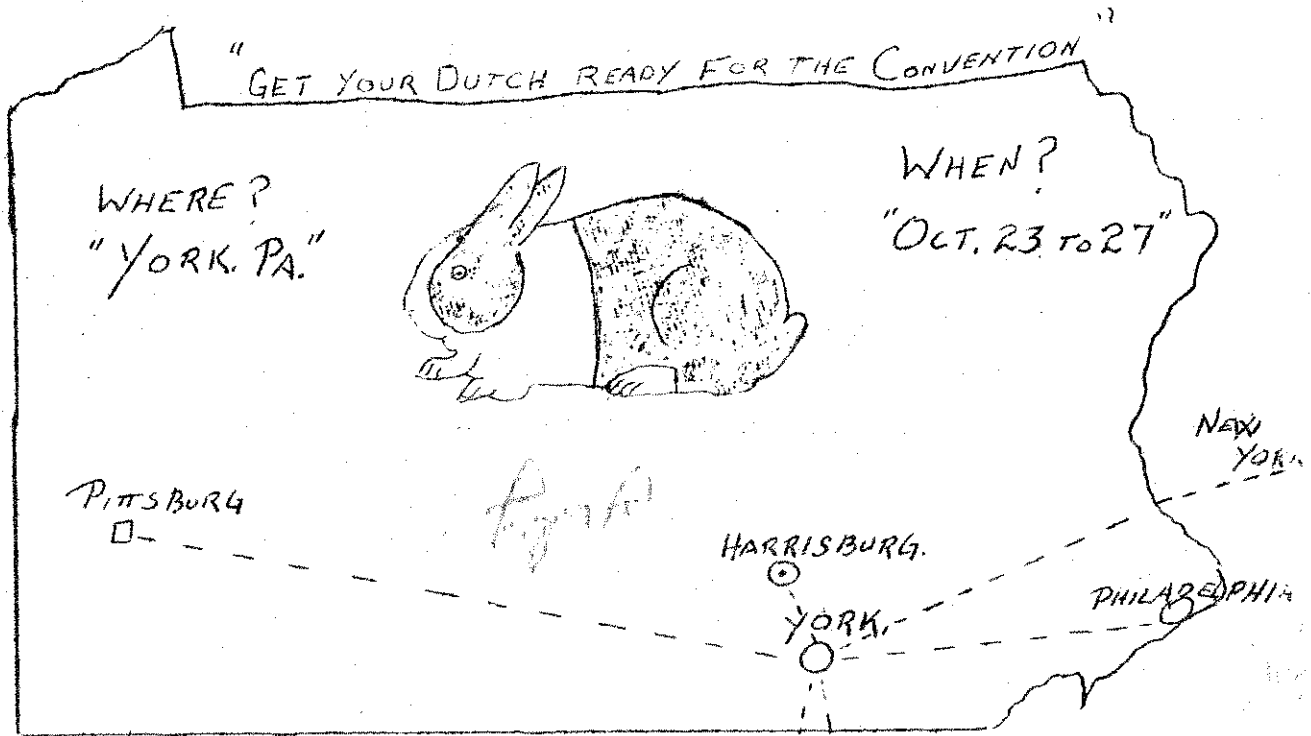 "GET YOUR DUTCH READY FOR THE CONVENTION"
WHERE?
"YORK. PA."
WHEN?
"OCT. 23 TO 27"
NEW
PITTSBURG
HARRISBURG.
YORK.